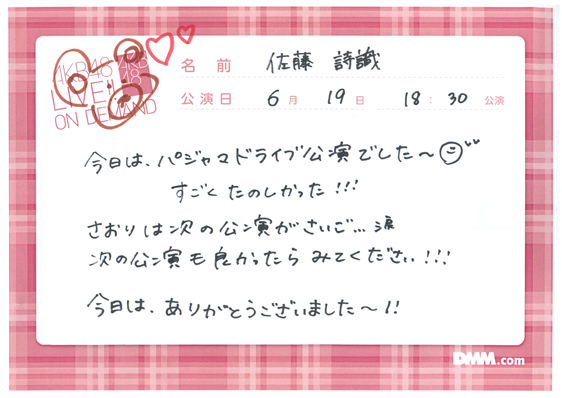 AKB48 AKB48
LIVE!! ON DEMAND
名前 佐藤 詩識
公演日 6月 19日 18:30 公演
今日は、パジャマドライブ公演でした〜
すごくたのしかった!!!
さおりは次の公演がさいご...涙
次の公演も良かったらみてください!!!
今日は、ありがとうございました〜!!
DMM.com